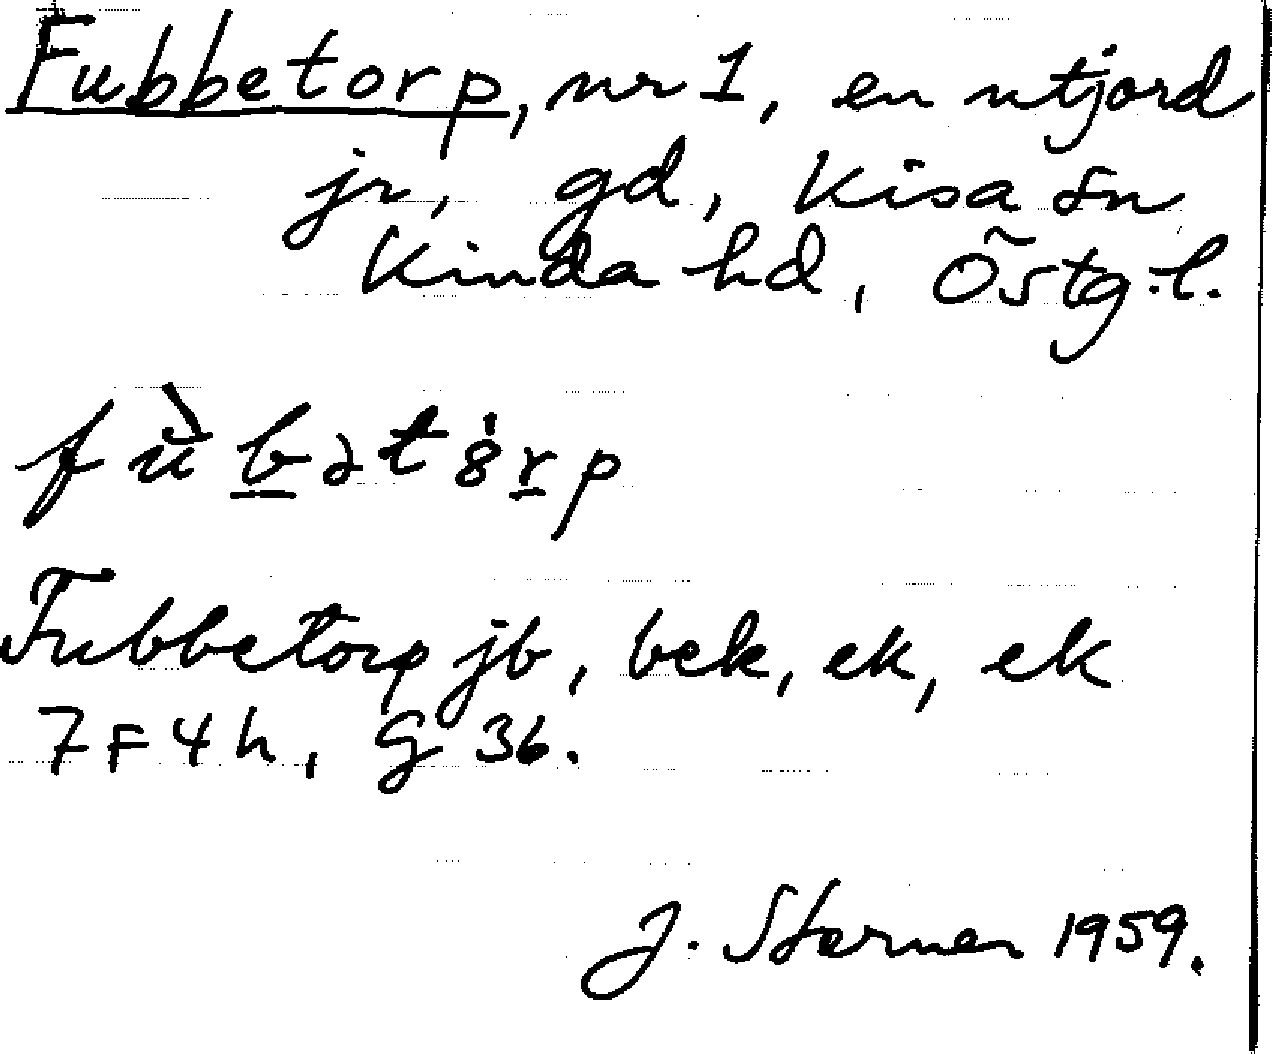 Fubbetorp, nr 1, en utjord
jr, gd, Kisa sn
Kinda hd, Östg.l.
fùbətȯrp
Fubbetorp jb, bek, ek, ek
7F4h, g 36.
J. Starner 1959.